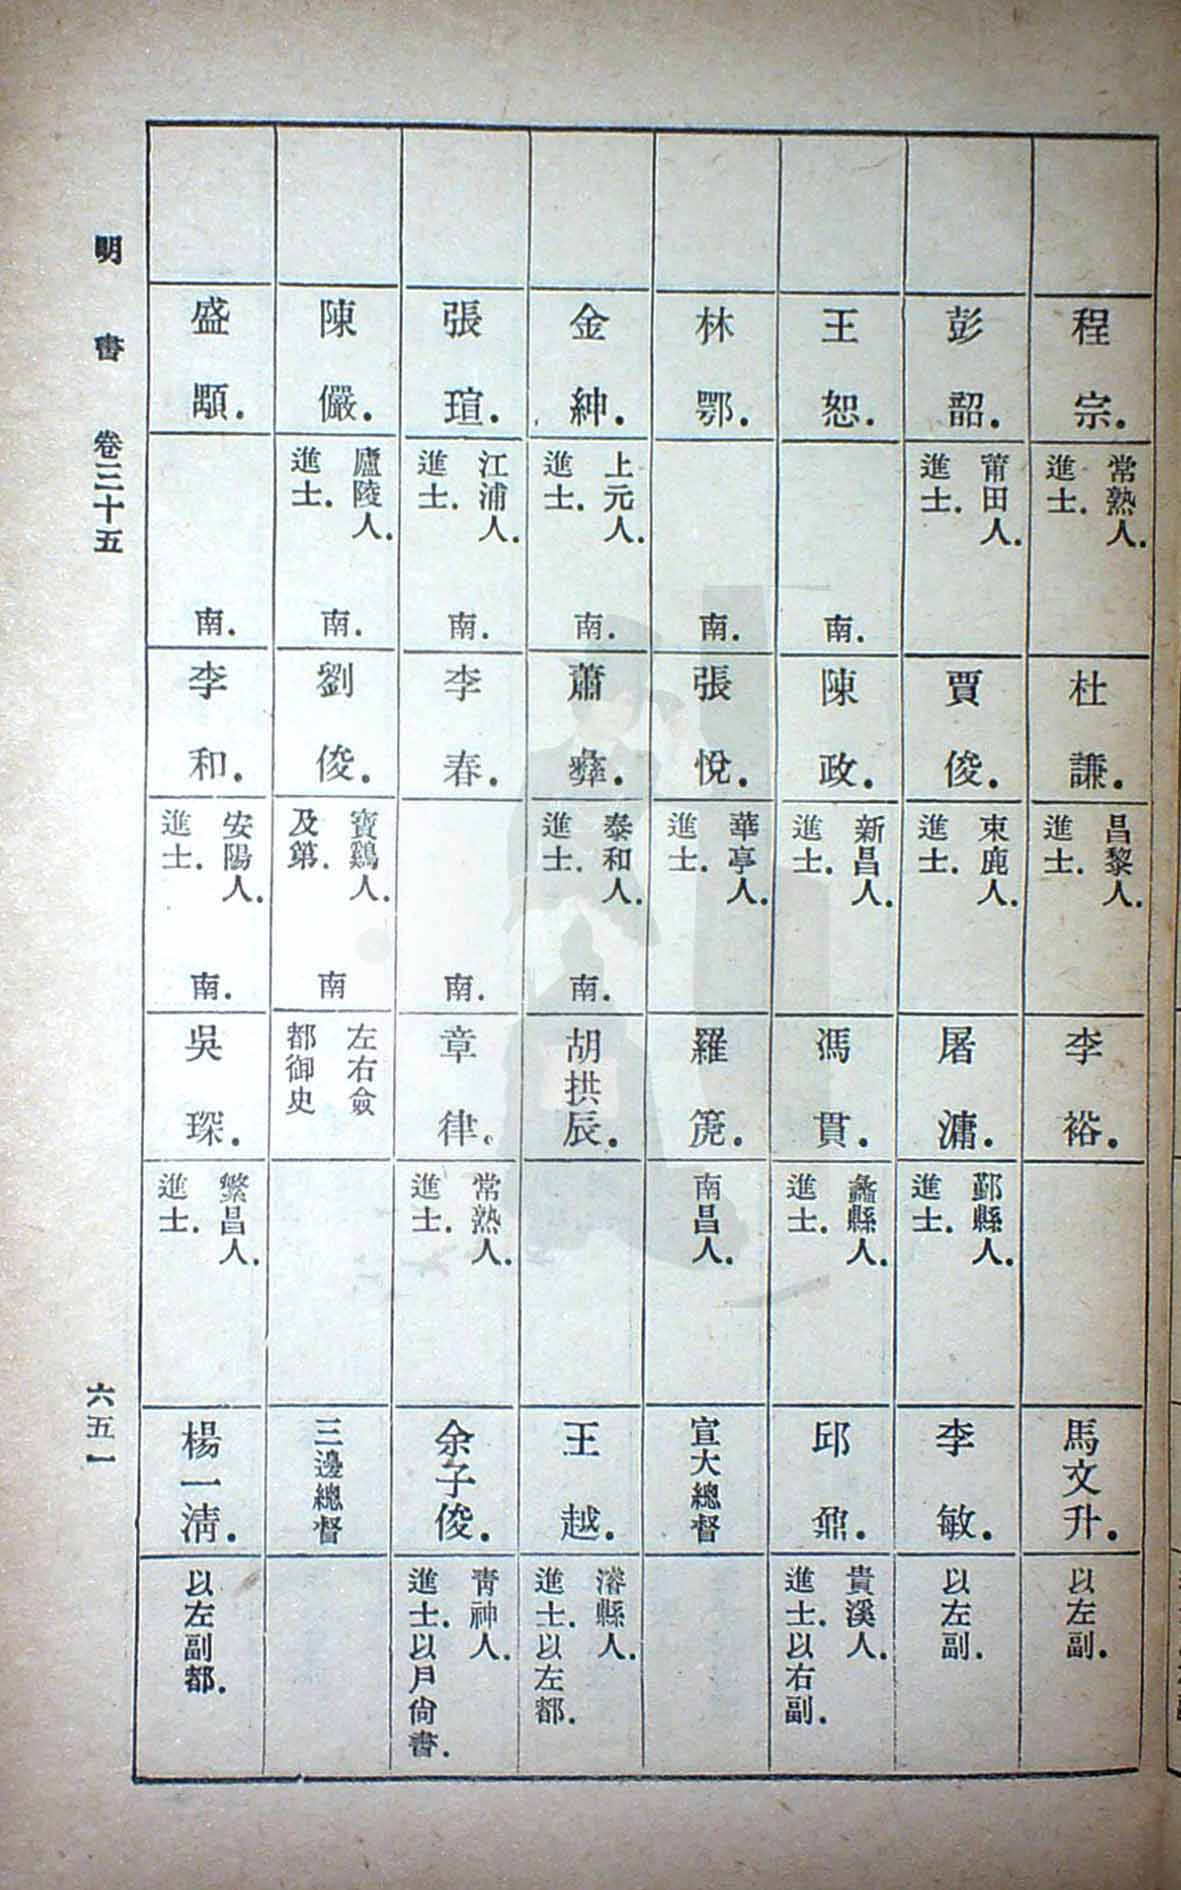 程宗．
常熟人．
進士．
杜謙．
昌黎人．
進士．
李裕．
馬文升．
以左副．
彭韶．
莆田人．
進士．
賈俊．
束鹿人．
進士．
屠滽．
鄞縣人．
進士．
李敏．
以左副．
王恕．
南．
陳政．
新昌人．
進士．
馮貫．
蠡縣人．
進士．
邱鼐．
貴溪人．
進士．以右副．
林鄂．
南．
張悅．
華亭人．
進士．
羅箎．
南昌人．
宣大總督
金紳．
上元人．
進士．
南．
蕭彝．
泰和人．
進士．
南．
胡拱辰．
王越．
濬縣人．
進士．以左都．
張瑄．
江浦人．
進士．
南．
李春．
南．
章律。
常熟人．
進士．
余子俊．
青神人．
進士．以戶尚書．
陳儼．
廬陵人．
進士．
南．
劉俊．
寶鷄人．
及第．
南
左右僉
都御史
三邊總督
盛顒．
南．
李和．
安陽人．
進士．
南．
吳琛．
繁昌人．
進士．
楊一清．
以左副都．
明書 卷三十五
六五一